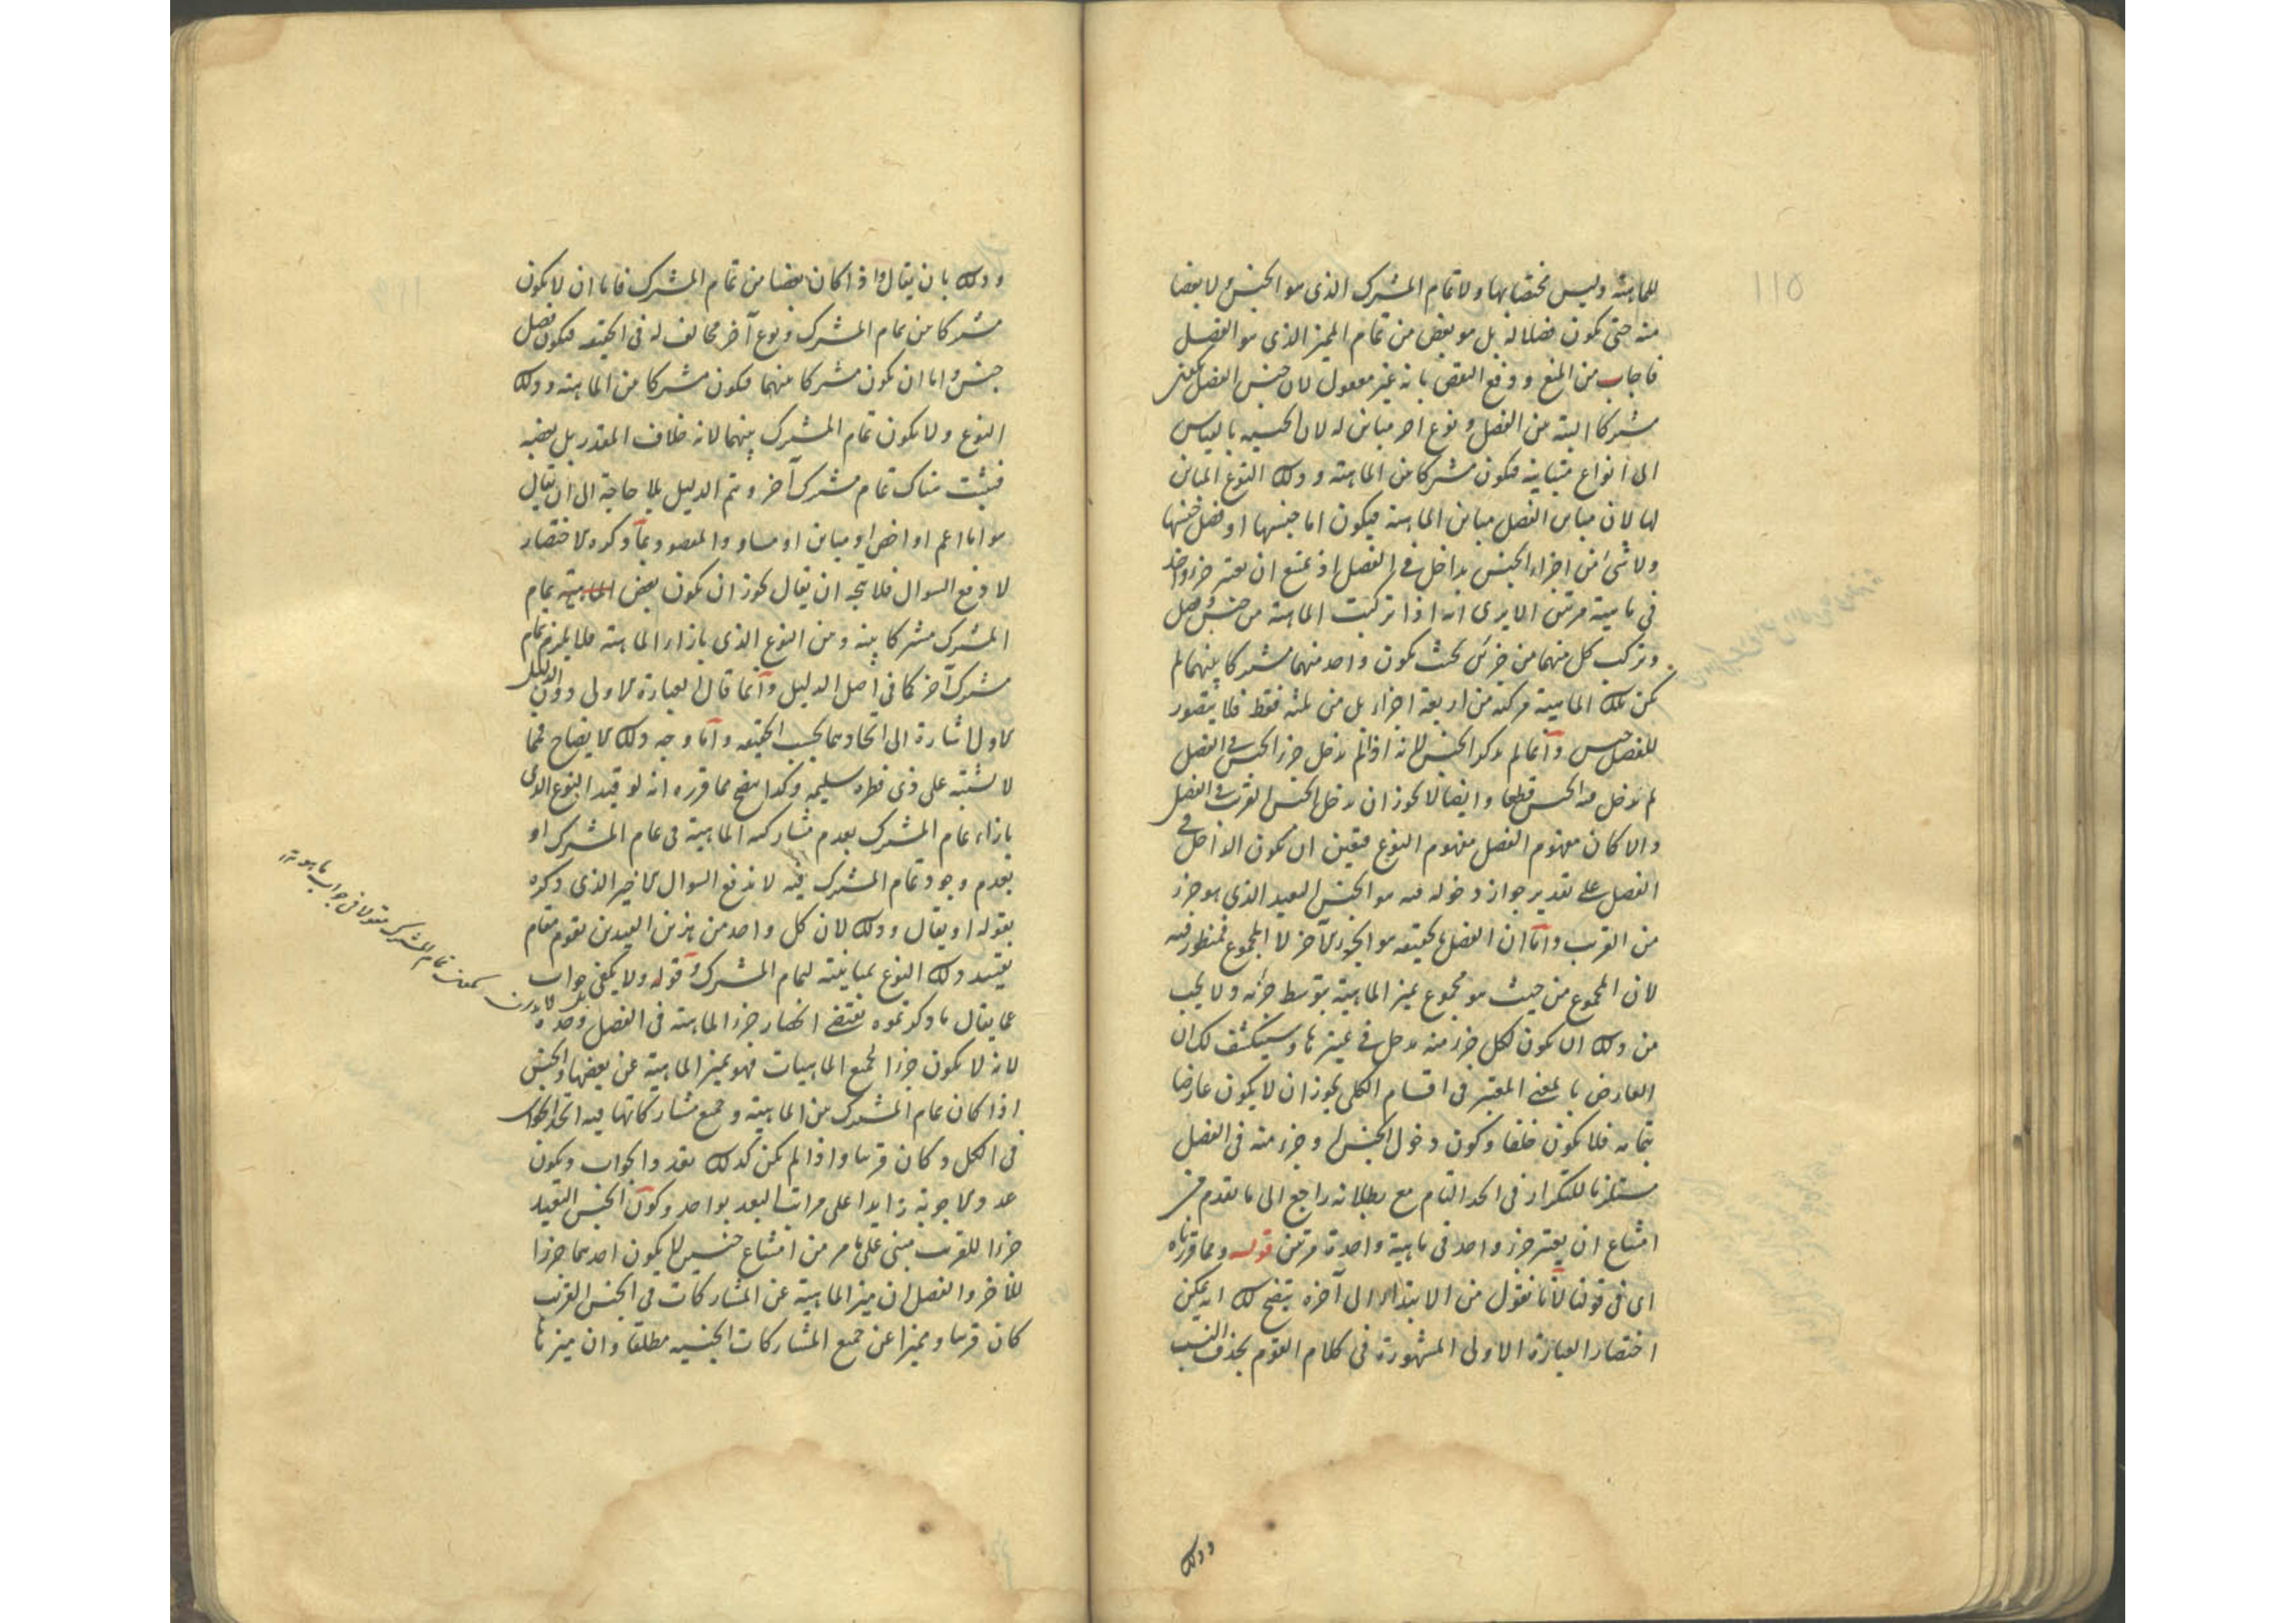 ١١٥
للماهية وليس مختصا بها ولا تمام المشترك الذى هو الجنس ولا بعضا
منه حتى يكون فصلا له بل هو بعض من تمام المميز الذى هو الفصل
فاجاب من المنع ودفع النقض بانه غير معقول لان جنس الفصل يكون
مشتركا البتة من الفصل ونوع اخر مباين له لان الجنسية بالقياس
الى انواع متباينة فيكون مشتركا من الماهية وذلك النوع المباين
لها لان مباين الفصل مباين الماهية فيكون اما جنسها او فصل جنسها
ولا شئ من اجزاء الجنس بداخل فى الفصل اذ يمتنع ان يعتبر جزء واحد
فى ماهية مرتين الا يرى انه اذا تركبت الماهية من جنس وفصل
وتركب كل منهما من جزئين بحيث يكون واحد منهما مشتركا بينهما لم
يكن تلك الماهية مركبة من اربعة اجزاء بل من ثلثة فقط فلا يتصور
للفصل جنس وانما لم يذكر الجنس لانه اذا لم يدخل جزء الجنس فى الفصل
لم يدخل فيه الجنس قطعا وايضا لا يجوز ان يدخل الجنس القريب فى الفصل
والا كان مفهوم الفصل مفهوم النوع فتعين ان يكون الداخل فى
الفصل على تقدير جواز دخوله فيه هو الجنس البعيد الذى هو جزء
من القريب واما ان الفصل بالحقيقة هو الجزء الآخر لا المجموع فمنظور فيه
لان المجموع من حيث هو مجموع يميز الماهية بتوسط جزئه ولا يجب
من ذلك ان يكون لكل جزء منه مدخل فى تمييزها وسينكشف لك ان
العارض بالمعنى المعتبر فى اقسام الكلى يجوز ان لا يكون عارضا
بتمامه فلا يكون خلفا وكون دخول الجنس او جزء منه فى الفصل
مستلزما للتكرار فى الحد التام مع بطلانه راجع الى ما تقدم من
امتناع ان يعتبر جزء واحد فى ماهية واحدة مرتين قوله ومما قررناه
اى فى قولنا لانا نقول من الابتداء الى آخره يتضح لك انه يمكن
اختصار العبارة الاولى المشهورة فى كلام القوم بحذف النسب
وذلك
وذلك بان يقال اذا كان بعضا من تمام المشترك فاما ان لا يكون
مشتركا من تمام المشترك ونوع آخر مخالف له فى الحقيقة فيكون فصل
جنس واما ان يكون مشتركا منهما فيكون مشتركا من الماهية وذلك
النوع ولا يكون تمام المشترك بينهما لانه خلاف المقدر بل بعضه
فيثبت هناك تمام مشترك آخر ويتم الدليل بلا حاجة الى ان يقال
هو اما اعم او اخص او مباين او مساو والمقصود بما ذكره الاختصار
لا دفع السوال فلا يتجه ان يقال يجوز ان يكون بعض تمام
المشترك مشتركا بينه ومن النوع الذى بازاء الماهية فلا يلزم تمام
مشترك آخر كما فى اصل الدليل وانما قال العبارة الاولى دون الدليل
الاول اشارة الى اتحادهما بحسب الحقيقة واما وجه ذلك الايضاح فمما
لا يشتبه على ذى فطرة سليمة وكذا يتضح مما قرره انه لو قيد النوع الذى
بازاء تمام المشترك بعدم مشاركة الماهية فى تمام المشترك او
بعدم وجود تمام المشترك فيه لا ندفع السوال الاخير الذى ذكره
بقوله او يقال وذلك لان كل واحد من هذين القيدين يقوم مقام
تقييد ذلك النوع بمباينته لتمام المشترك قوله ولا يكفى جواب
عما يقال ما ذكرتموه يقتضى انحصار جزء الماهية فى الفصل وحده
لانه لا يكون جزءا لجميع الماهيات فهو يميز الماهية عن بعضها والجنس
اذا كان تمام المشترك من الماهية وجميع مشاركاتها فيه اتحد الجواب
فى الكل وكان قريبا واذا لم يكن كذلك تعدد الجواب ويكون
عدد الاجوبة زايدا على مراتب البعد بواحد وكون الجنس البعيد
جزءا للقريب مبنى على ما مر من امتناع جنسين لا يكون احدهما جزءا
للآخر والفصل ان ميز الماهية عن المشاركات فى الجنس القريب
كان قريبا ومميزا عن جميع المشاركات الجنسية مطلقا وان ميزها
تمام المشترك مقولا فى جواب ما هو